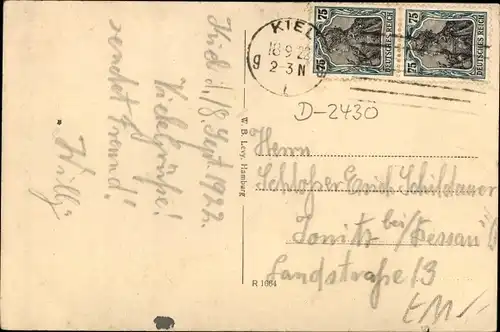 KIEL
18.9.22
2-3 N
g
75
75
DEUTSCHES REICH
75
75
DEUTSCHES REICH
D-2430
Kiel d. 18. Sept. 1922.
Viele Grüße!
sendet Freund!
Willy
W. B. Levy, Hamburg
R 1664
Herrn
Schlosser Erich Schildauer
Jonitz bei/Dessau
Landstraße 13